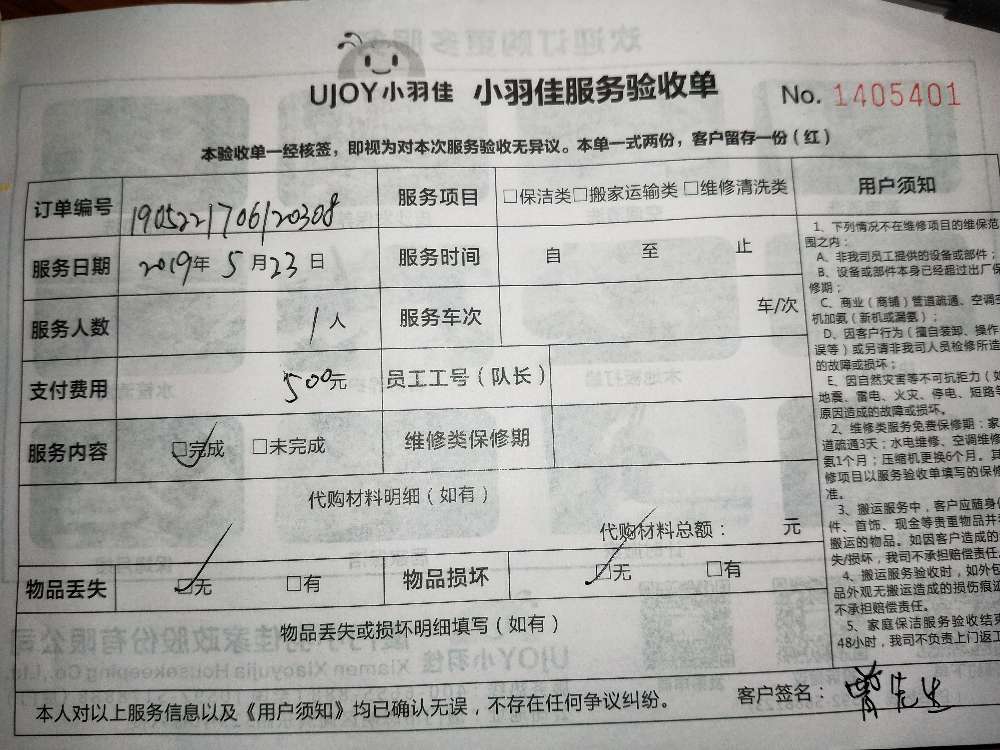 UJOY小羽佳 小羽佳服务验收单 No. 1405401
本验收单一经核签，即视为对本次服务验收无异议。本单一式两份，客户留存一份（红）
订单编号 1905221706120308 服务项目 □保洁类□搬家运输类 □维修清洗类
服务日期 2019年 5月23日 服务时间 自 至 止
服务人数 1人 服务车次 车/次
支付费用 500元 员工工号（队长）
服务内容 □完成 □未完成 维修类保修期
代购材料明细（如有）
代购材料总额： 元
物品丢失 □无 □有 物品损坏 □无 □有
物品丢失或损坏明细填写（如有）
本人对以上服务信息以及《用户须知》均已确认无误，不存在任何争议纠纷。 客户签名：曾先生
用户须知
1、下列情况不在维修项目的维保范
围之内：
A、非我司员工提供的设备或部件；
B、设备或部件本身已经超过出厂保
修期；
C、商业（商铺）管道疏通、空调空
机加氨（新机或漏氨）；
D、因客户行为（擅自装卸、操作
误等）或另请非我司人员检修所造
的故障或损坏；
E、因自然灾害等不可抗拒力（如
地震、雷电、火灾、停电、短路等
原因造成的故障或损坏。
2、维修类服务免费保修期：家
道疏通3天；水电维修、空调维修
氨1个月；压缩机更换6个月。其
修项目以服务验收单填写的保修
准。
3、搬运服务中，客户应随身
件、首饰、现金等贵重物品并
搬运的物品。如因客户造成的
失/损坏，我司不承担赔偿责任
4、搬运服务验收时，如外包
品外观无搬运造成的损伤痕迹
不承担赔偿责任。
5、家庭保洁服务验收结束
48小时，我司不负责上门返工